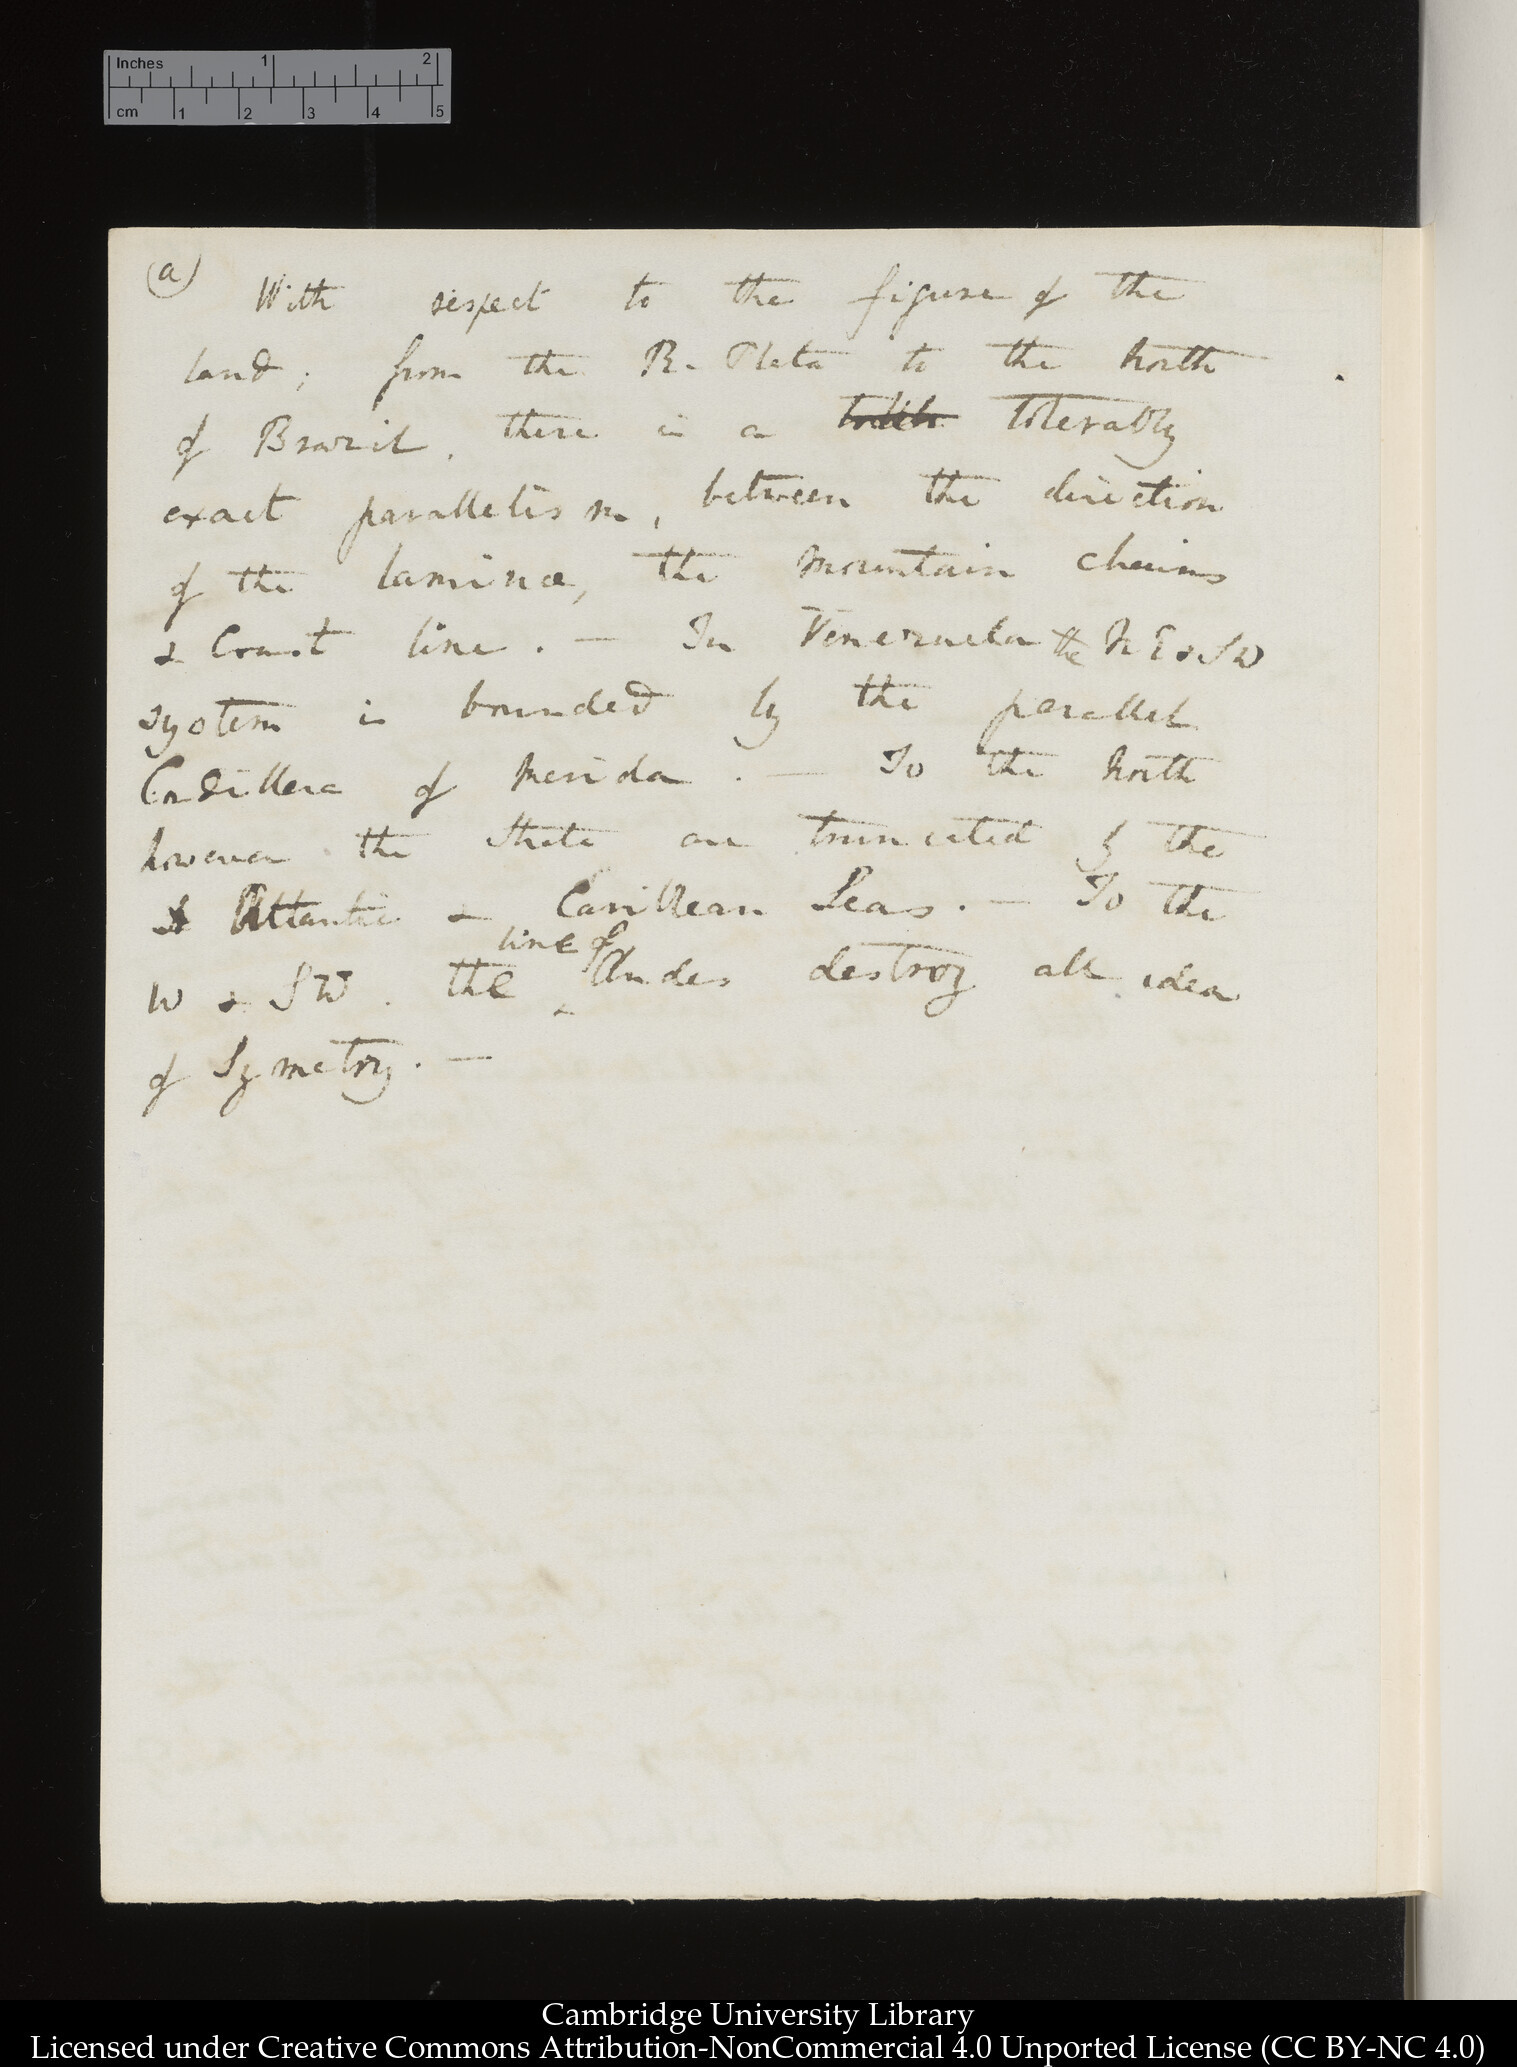 Inches 1 2
cm 1 2 3 4 5
(a)
With respect to the figure of the
land; from the R. Plata to the North
of Brazil, there is a tolerably
exact parallelism, between the direction
of the laminæ, the mountain chains
& Coast line. — In Venezuela the N E & S W
system is bounded by the parallel
Cordillera of Merida. — To the North
however the strata are truncated by the
Atlantic & Caribbean Seas. — To the
W & SW. the line of Andes destroy all idea
of Symetry. —
Cambridge University Library
Licensed under Creative Commons Attribution-NonCommercial 4.0 Unported License (CC BY-NC 4.0)